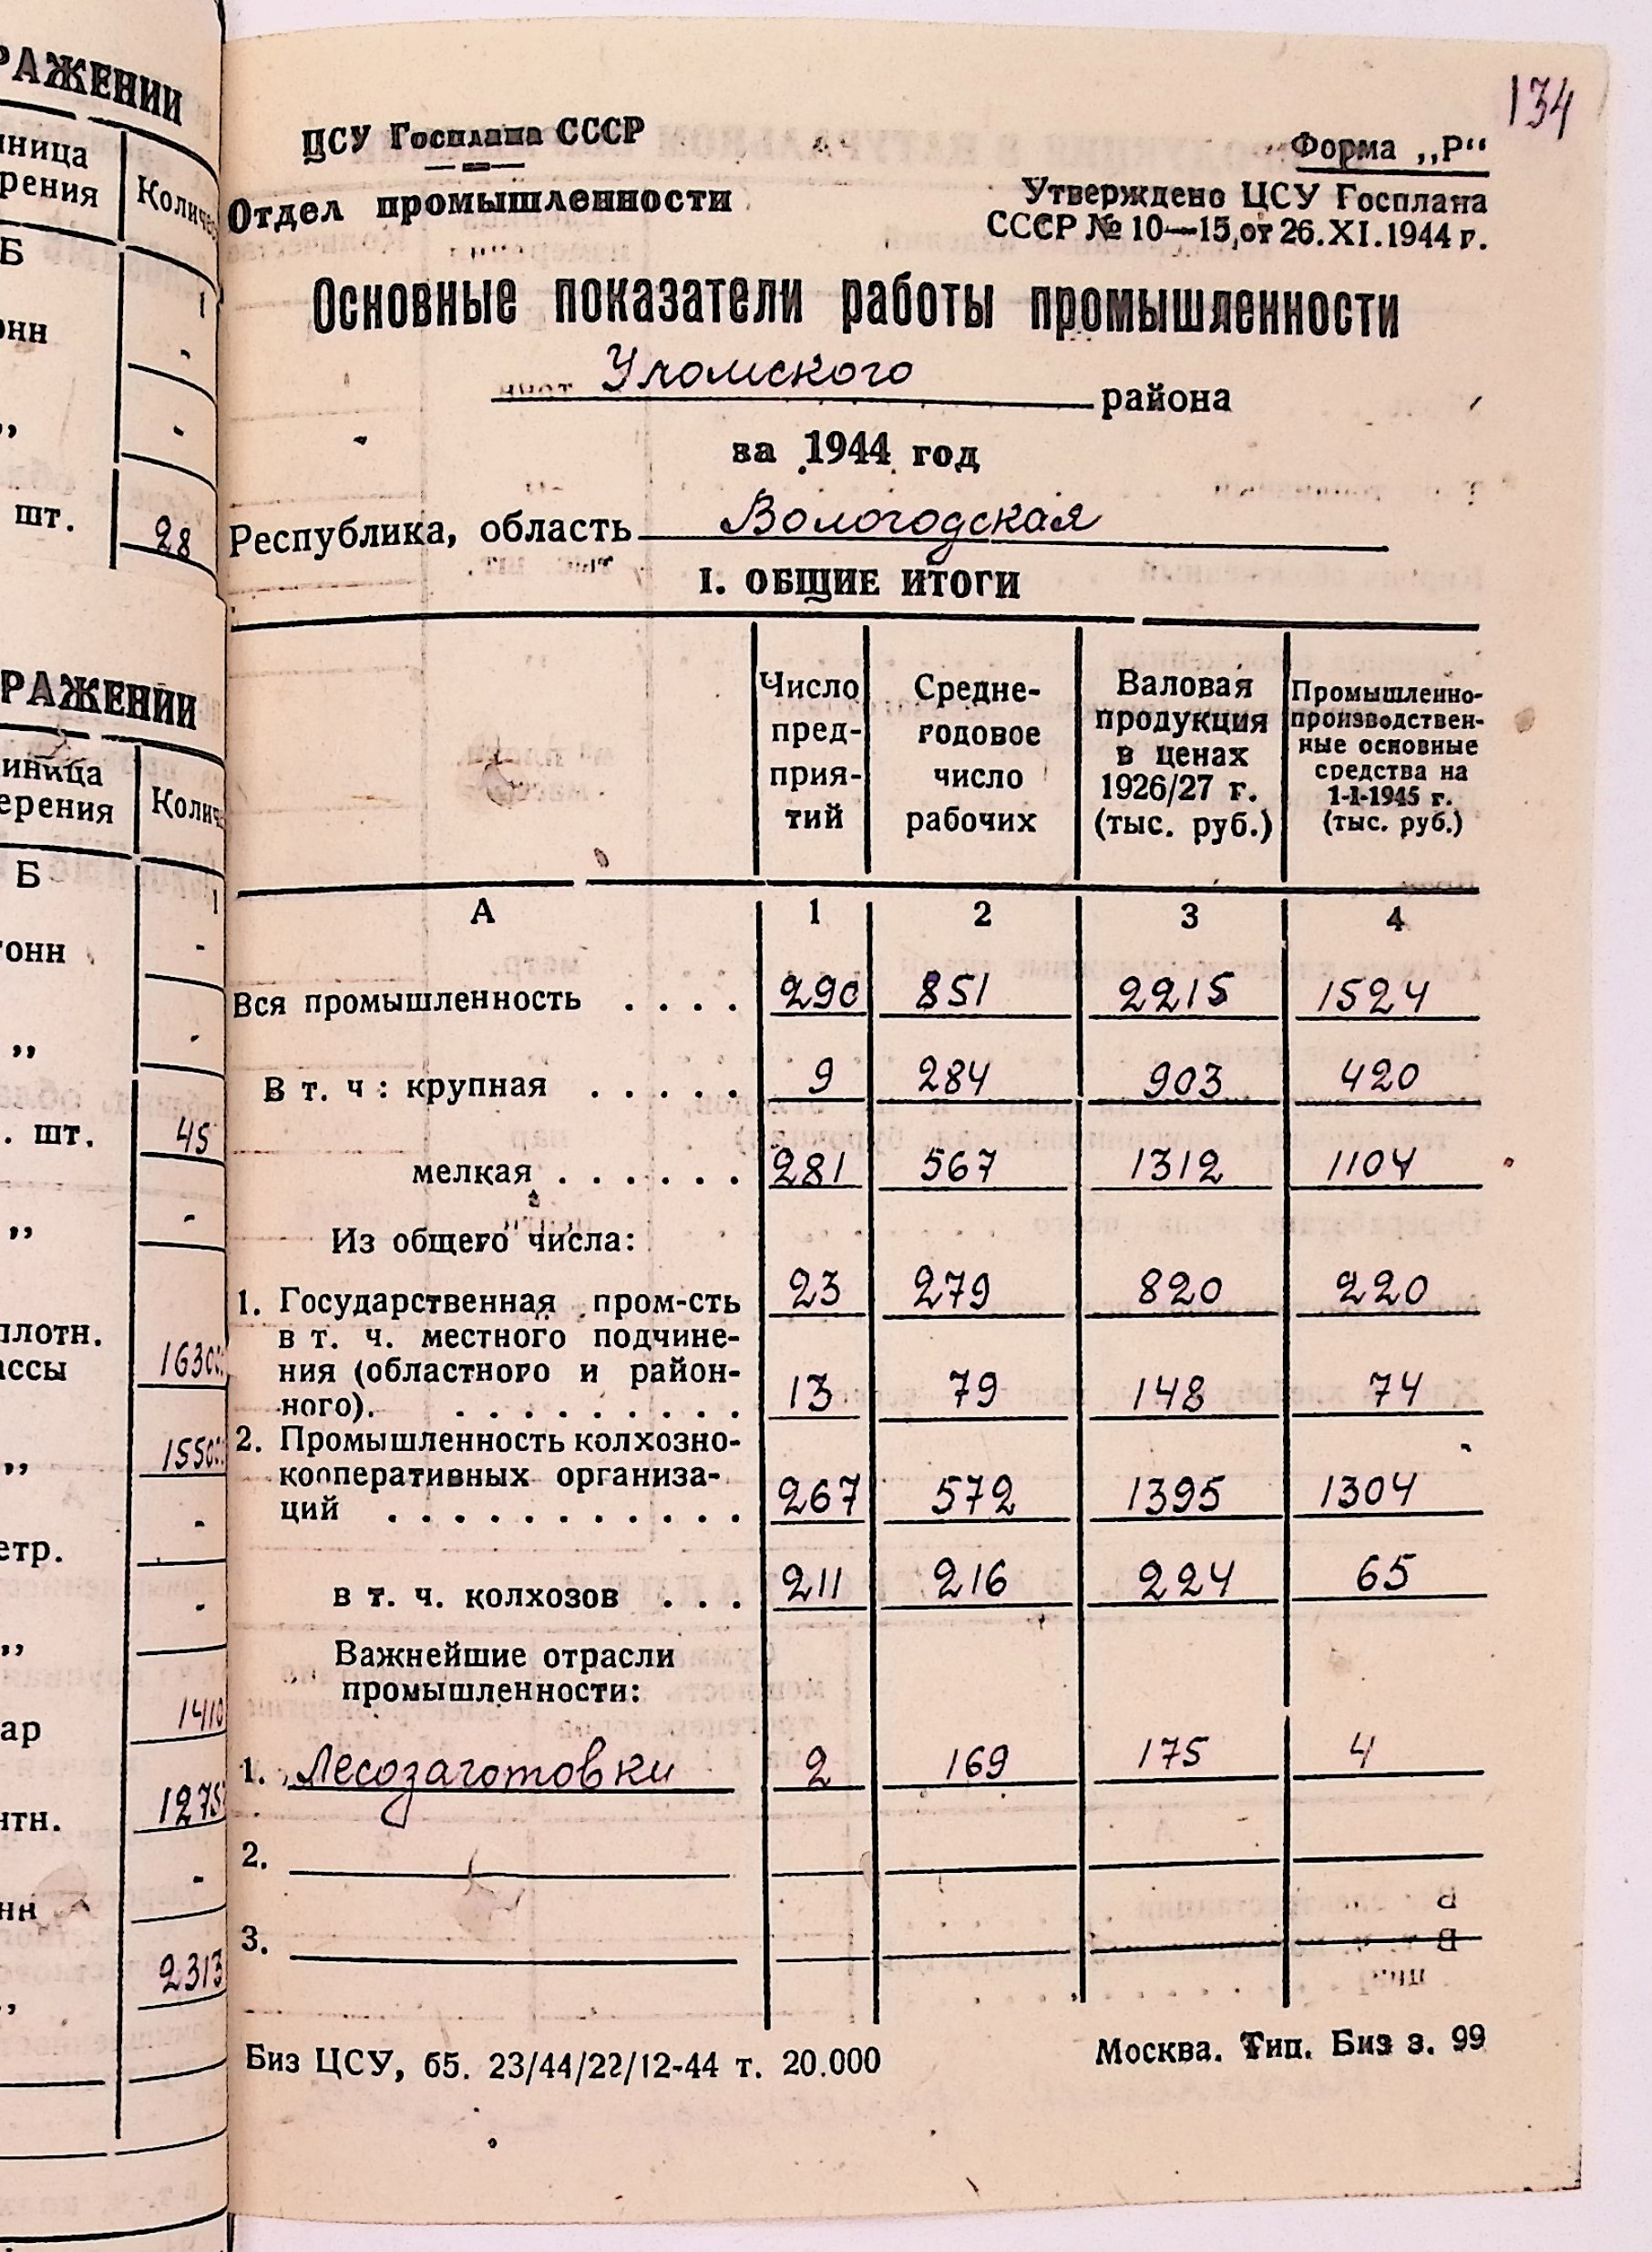 РАЖЕНИИ
ница
рения
Колич
Б
1
онн
-
„
-
шт.
28
РАЖЕНИИ
иница
ерения
Колич
Б
1
тонн
-
„
-
. шт.
45
„
-
плотн.
ассы
1630
„
1550
-
етр.
-
„
ар
1410
нтн.
1275
-
нн
2313
134
ЦСУ Госплана СССР
Форма „Р“
Отдел промышленности
Утверждено ЦСУ Госплана
СССР № 10—15, от 26.XI.1944 г.
Основные показатели работы промышленности
Уломского района
за 1944 год
Республика, область Вологодская
I. ОБЩИЕ ИТОГИ
Число пред-прия-тий
Средне-годовое число рабочих
Валовая продукция в ценах 1926/27 г. (тыс. руб.)
Промышленно-производствен-ные основные средства на 1-I-1945 г. (тыс. руб.)
А 1 2 3 4
Вся промышленность . . . . 290 851 2215 1524
В т. ч: крупная . . . . . 9 284 903 420
мелкая . . . . . . 281 567 1312 1104
Из общего числа:
1. Государственная пром-сть 23 279 820 220
в т. ч. местного подчине-
ния (областного и район-
ного). . . . . . . . . . 13 79 148 74
2. Промышленность колхозно-
кооперативных организа-
ций . . . . . . . . . . . 267 572 1395 1304
в т. ч. колхозов . . . 211 216 224 65
Важнейшие отрасли
промышленности:
1. Лесозаготовки 2 169 175 4
2.
3.
Биз ЦСУ, б5. 23/44/22/12-44 т. 20.000
Москва. Тип. Биз з. 99